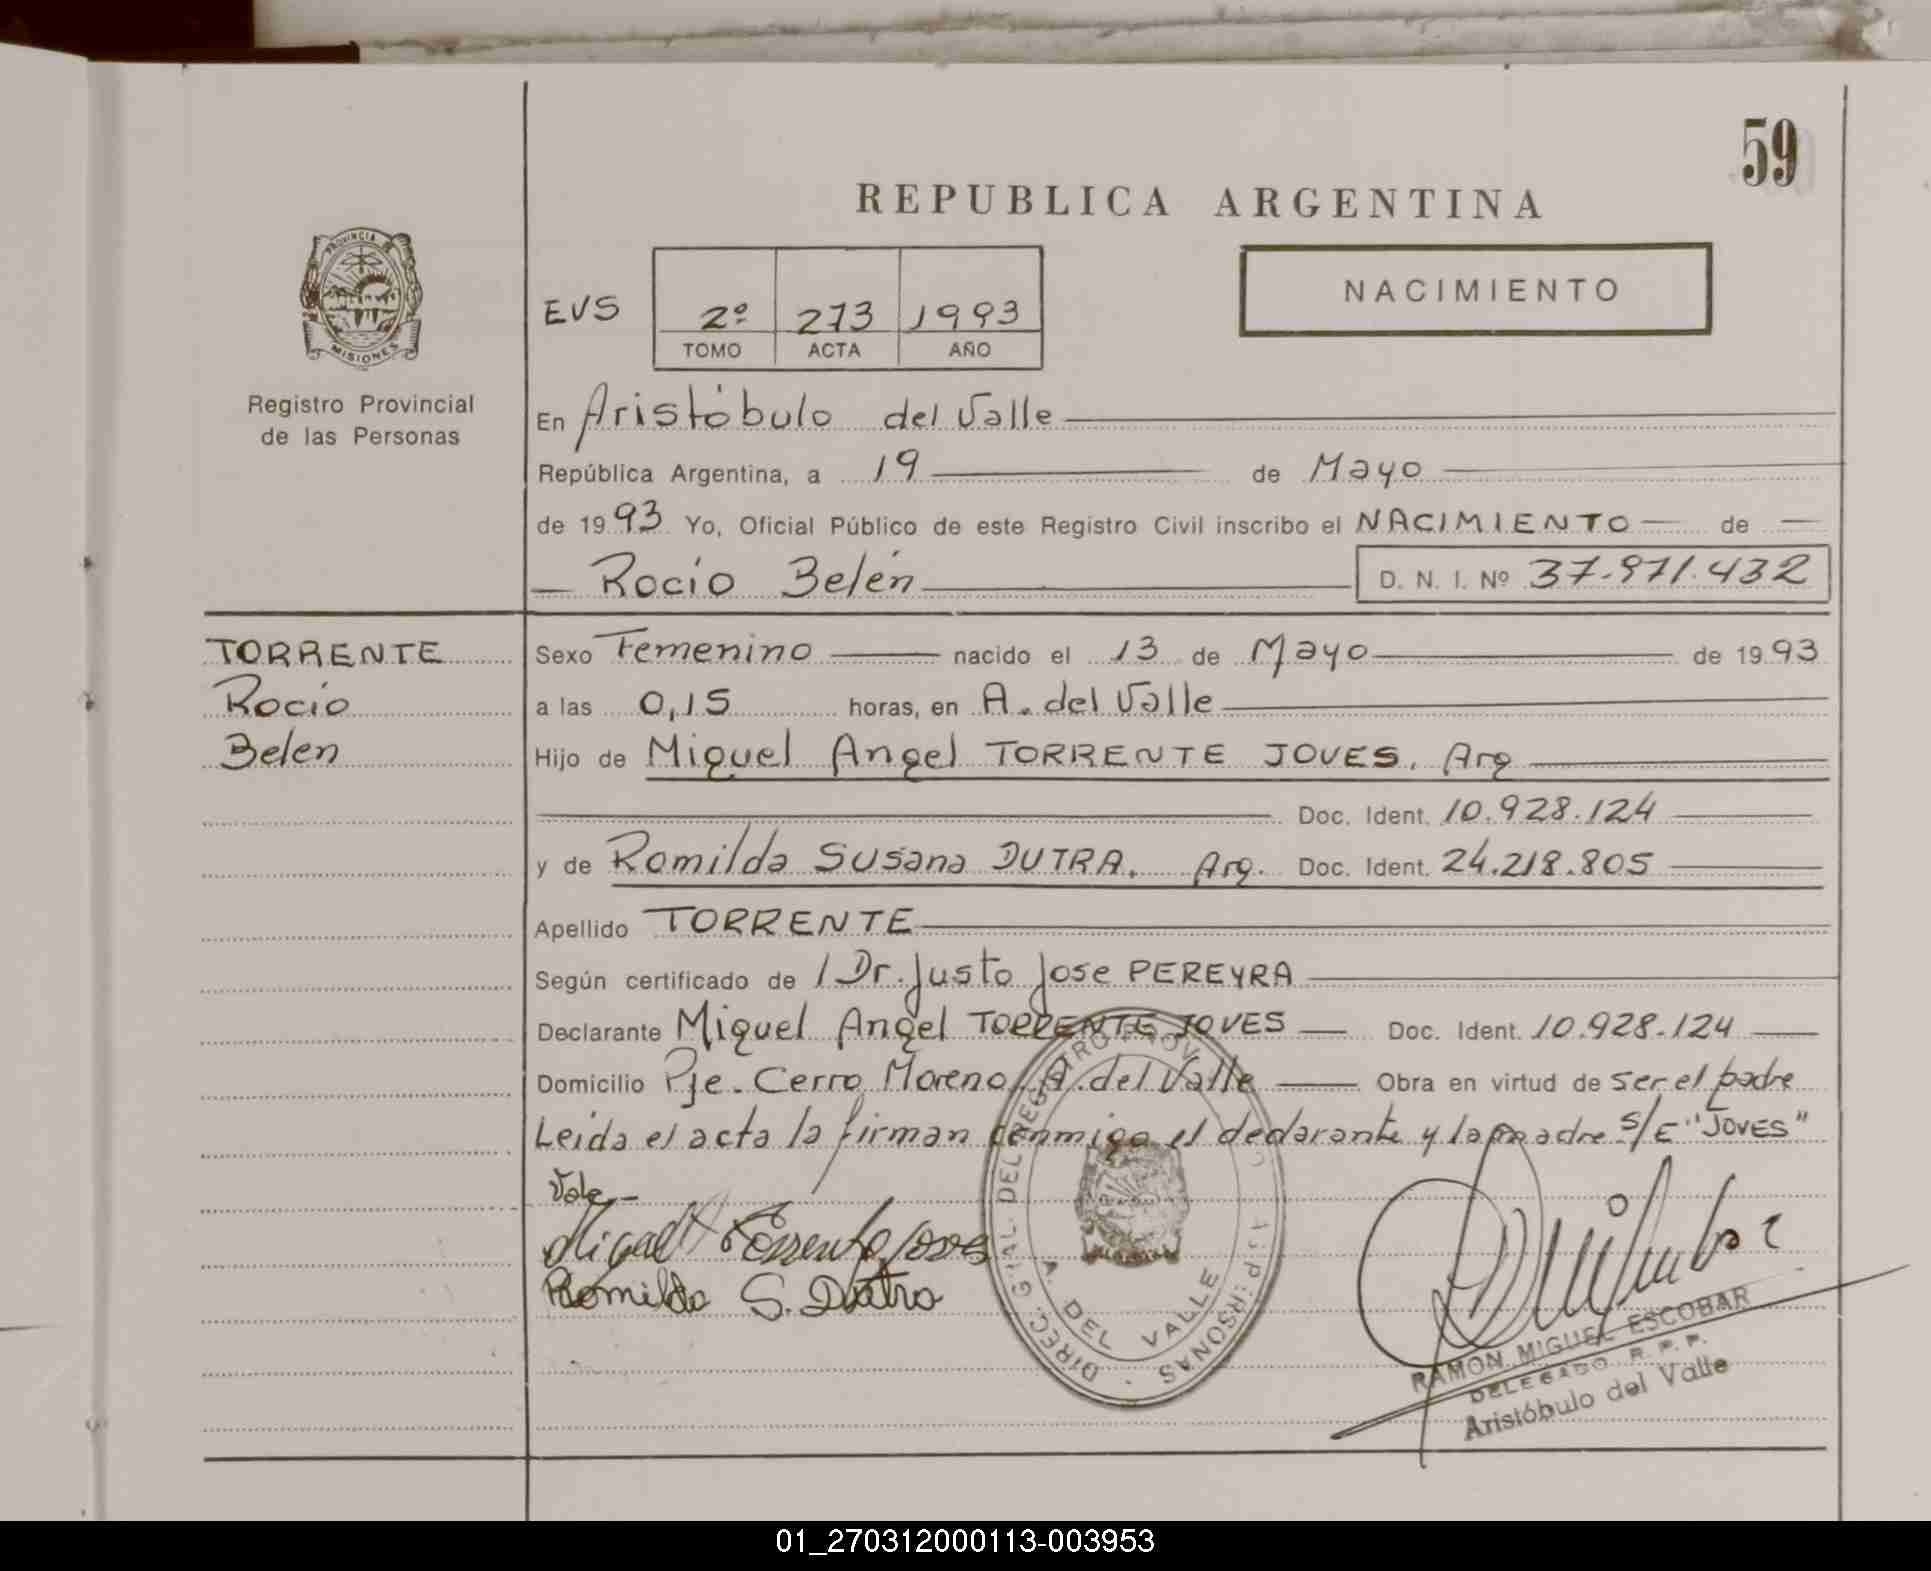 59
REPUBLICA ARGENTINA
PROVINCIA DE
MISIONES
Registro Provincial
de las Personas
EVS
2º 273 1993
TOMO ACTA AÑO
NACIMIENTO
En Aristóbulo del Valle
República Argentina, a 19 de Mayo
de 1993 Yo, Oficial Público de este Registro Civil inscribo el NACIMIENTO de
Rocío Belén D. N. I. Nº 37.971.432
TORRENTE
Rocío
Belen
Sexo Femenino nacido el 13 de Mayo de 1993
a las 0,15 horas, en A. del Valle
Hijo de Miguel Angel TORRENTE JOVES, Arg
Doc. Ident. 10.928.124
y de Romilda Susana DUTRA. Arg. Doc. Ident. 24.218.805
Apellido TORRENTE
Según certificado de / Dr. Justo Jose PEREYRA
Declarante Miguel Angel TORRENTE JOVES Doc. Ident. 10.928.124
Domicilio Pje. Cerro Moreno, A. del Valle Obra en virtud de ser el padre
Leida el acta la firman conmigo el declarante y la madre S/E "JOVES"
Vale.-
Miguel A Torrente Joves
Romilda S. Dutra
DIREC. GRAL. DEL REGISTRO PROV. PERSONAS
A. DEL VALLE
RAMON MIGUEL ESCOBAR
DELEGADO R. P. P.
Aristóbulo del Valle
01_270312000113-003953